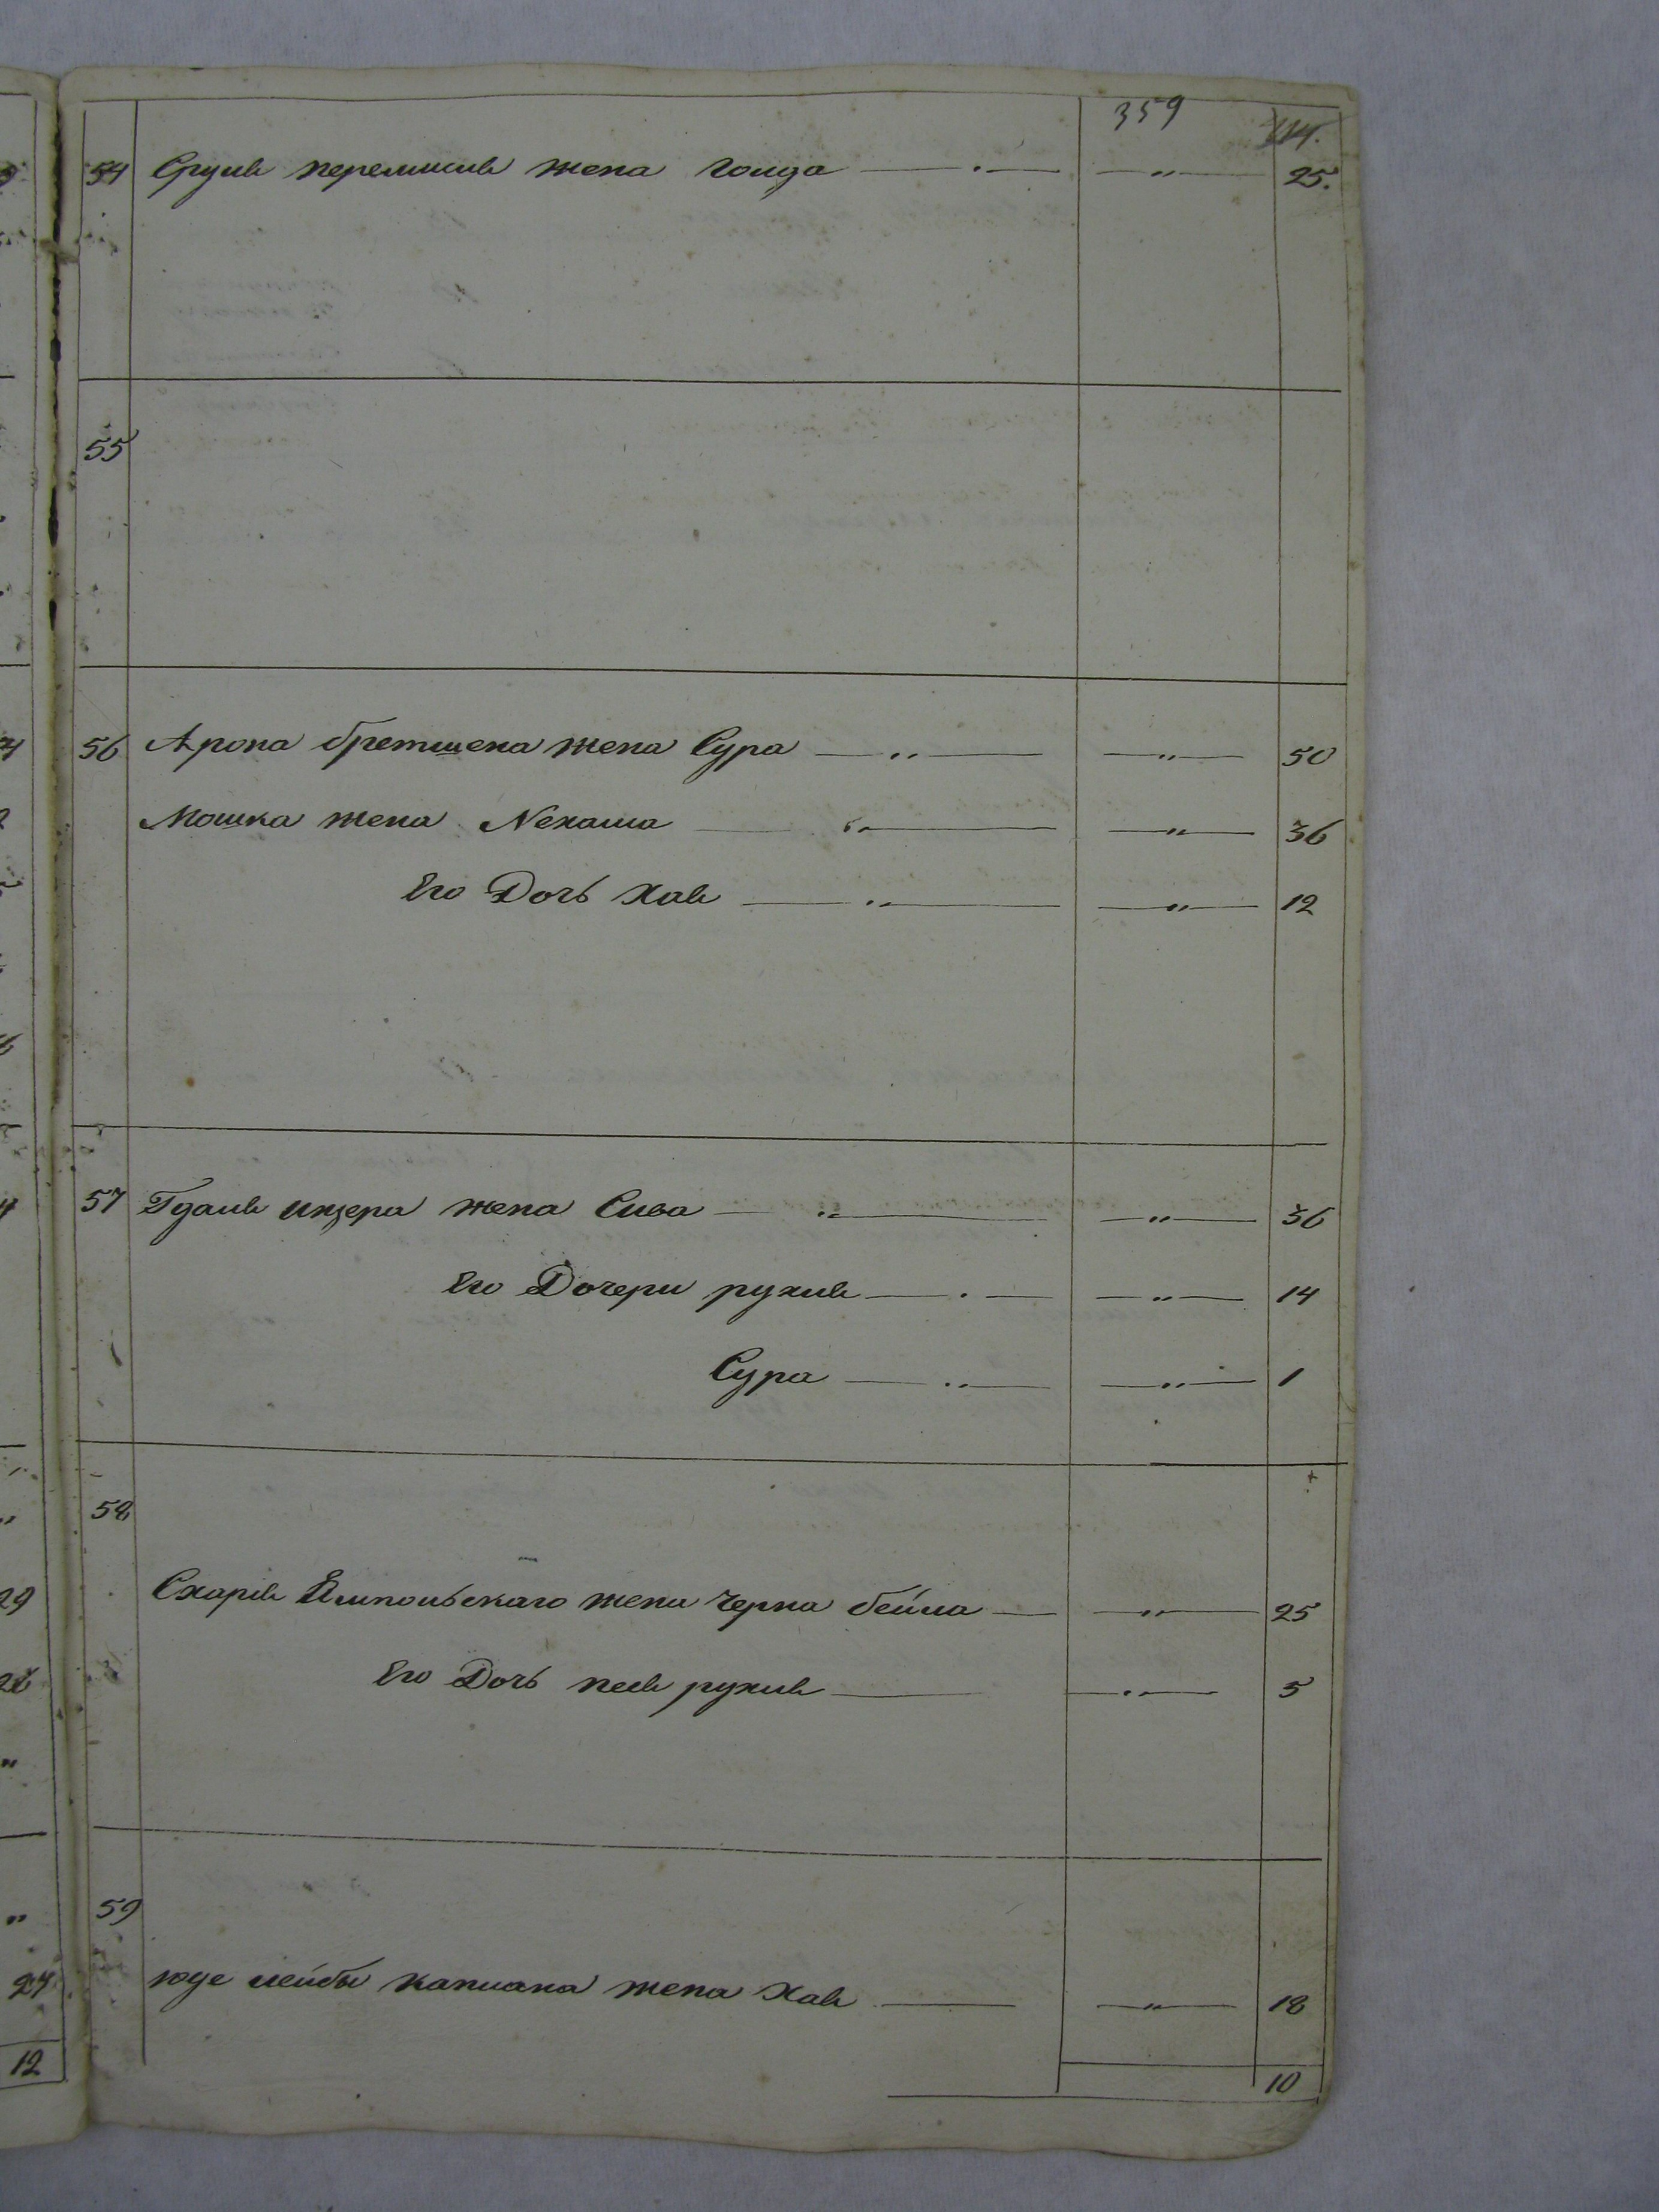 359
114.
54 Сруля перелмиля жена голда — „ — — „ — 25.
55
56 Арона бретшена жена Сура — „ — — „ — 50
Мошка жена Нехама — „ — — „ — 36
Его Дочь Хая — „ — — „ — 12
57 Гдаля инзера жена Сива — „ — — „ — 36
Его Дочери рухля — „ — — „ — 14
Сура — „ — — „ — 1
58
Схарія Ямпольскаго жена Черна бейла — — „ — 25
Его Дочь песя рухля — — „ — 5
59
юде лейбы каплана жена Хая — — „ — 18
10
29
27
12